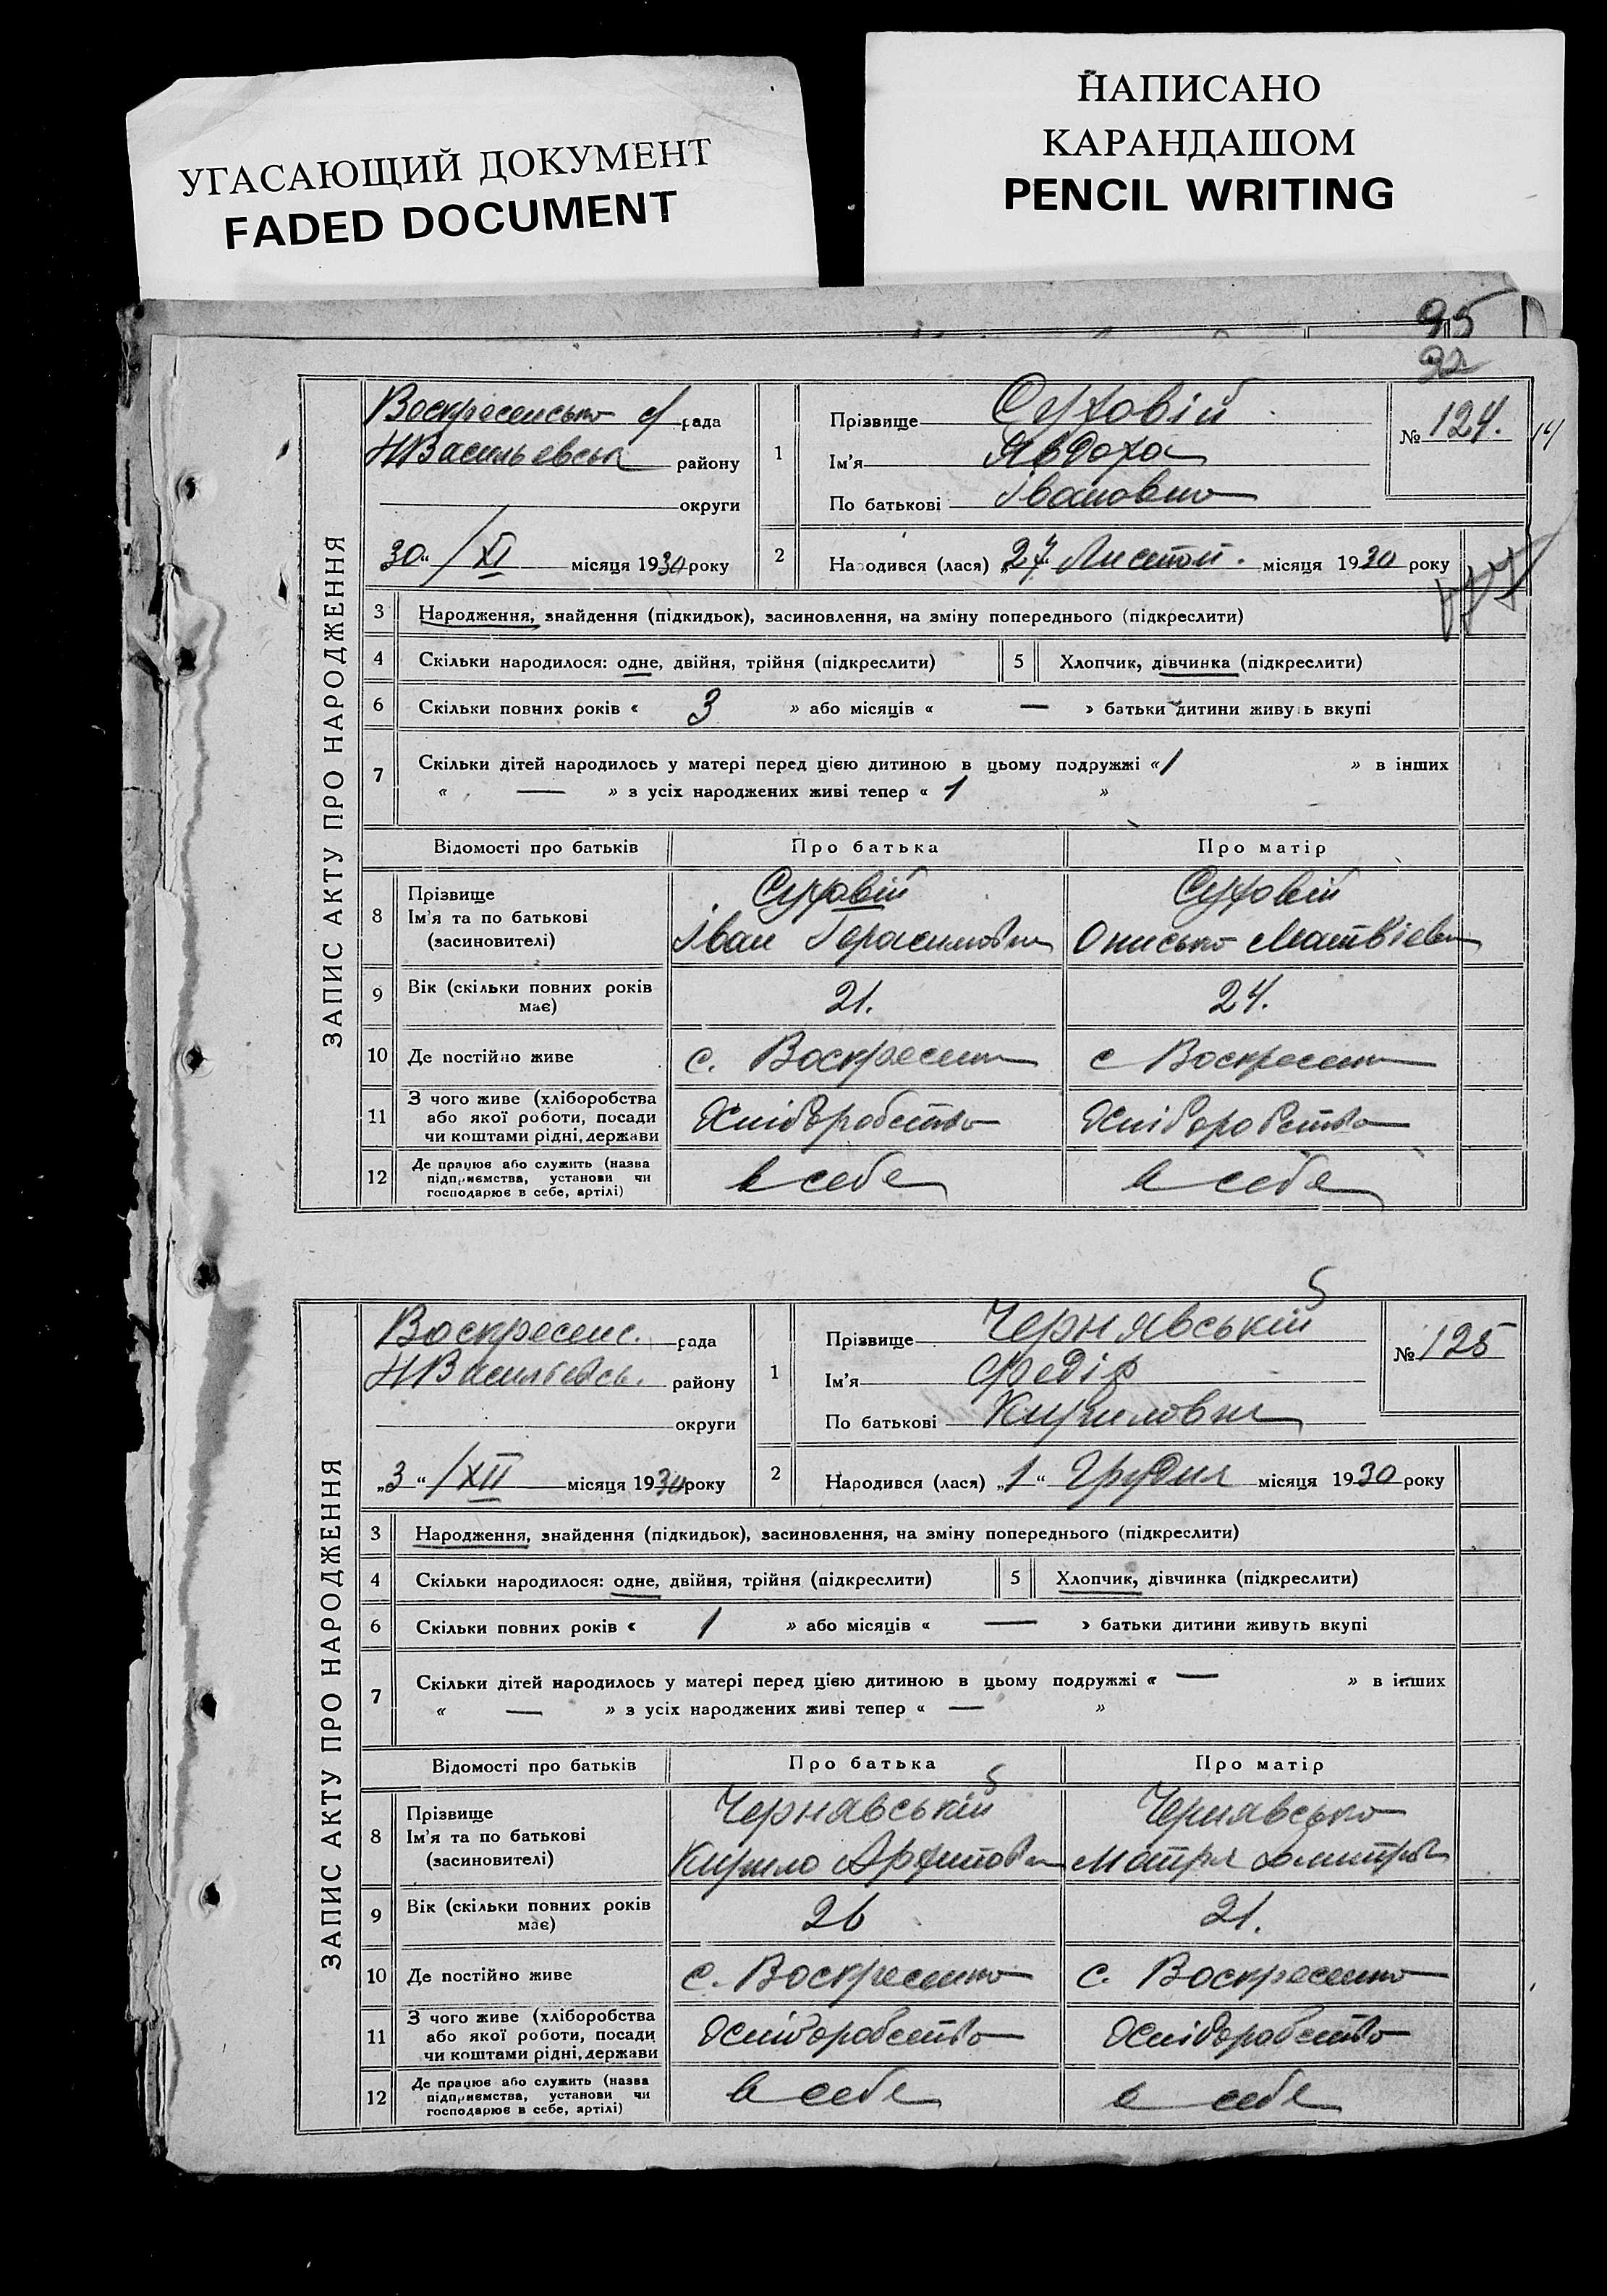 УГАСАЮЩИЙ ДОКУМЕНТ
FADED DOCUMENT
НАПИСАНО
КАРАНДАШОМ
PENCIL WRITING
95
92
ЗАПИС АКТУ ПРО НАРОДЖЕННЯ
Воскресенсько с/рада
НВасильевськ району
округи
30 “/XI місяця 1930 року
1
Прізвище Суховій
Ім'я Явдоха
По батькові Івановно
№ 124.
14
2
Народився (лася) „27“ Листоп. місяця 1930 року
3 Народження, знайдення (підкидьок), засиновлення, на зміну попереднього (підкреслити)
4 Скільки народилося: одне, двійня, трійня (підкреслити) 5 Хлопчик, дівчинка (підкреслити)
6 Скільки повних років « 3 » або місяців « — » батьки дитини живуть вкупі
7 Скільки дітей народилось у матері перед цією дитиною в цьому подружжі « 1 » в інших
« — » з усіх народжених живі тепер « 1 »
Відомості про батьків Про батька Про матір
8 Прізвище
Ім'я та по батькові
(засиновителі)
Суховій
Іван Герасимов
Суховій
Описько Матвіев
9 Вік (скільки повних років має) 21. 24.
10 Де постійно живе с. Воскресенк с Воскресенк
11 З чого живе (хліборобства
або якої роботи, посади
чи коштами рідні, держави
Хліборобство Хліборобство
12 Де працює або служить (назва
підприємства, установи чи
господарює в себе, артілі)
в себе в себе
ЗАПИС АКТУ ПРО НАРОДЖЕННЯ
Воскресенс. рада
НВасильевсь. району
округи
„3“/XII місяця 1930 року
1
Прізвище Чернявській
Ім'я Федір
По батькові Кирилович
№ 125
2
Народився (лася) „1“ Грудня місяця 1930 року
3 Народження, знайдення (підкидьок), засиновлення, на зміну попереднього (підкреслити)
4 Скільки народилося: одне, двійня, трійня (підкреслити) 5 Хлопчик, дівчинка (підкреслити)
6 Скільки повних років « 1 » або місяців « — » батьки дитини живуть вкупі
7 Скільки дітей народилось у матері перед цією дитиною в цьому подружжі « — » в інших
« — » з усіх народжених живі тепер « — »
Відомості про батьків Про батька Про матір
8 Прізвище
Ім'я та по батькові
(засиновителі)
Чернявській
Кирило Архипов
Чернявсько
Мотря Дмитрів
9 Вік (скільки повних років має) 26 21.
10 Де постійно живе с. Воскресенко с. Воскресенко
11 З чого живе (хліборобства
або якої роботи, посади
чи коштами рідні, держави
Хліборобство Хліборобство
12 Де працює або служить (назва
підприємства, установи чи
господарює в себе, артілі)
в себе в себе